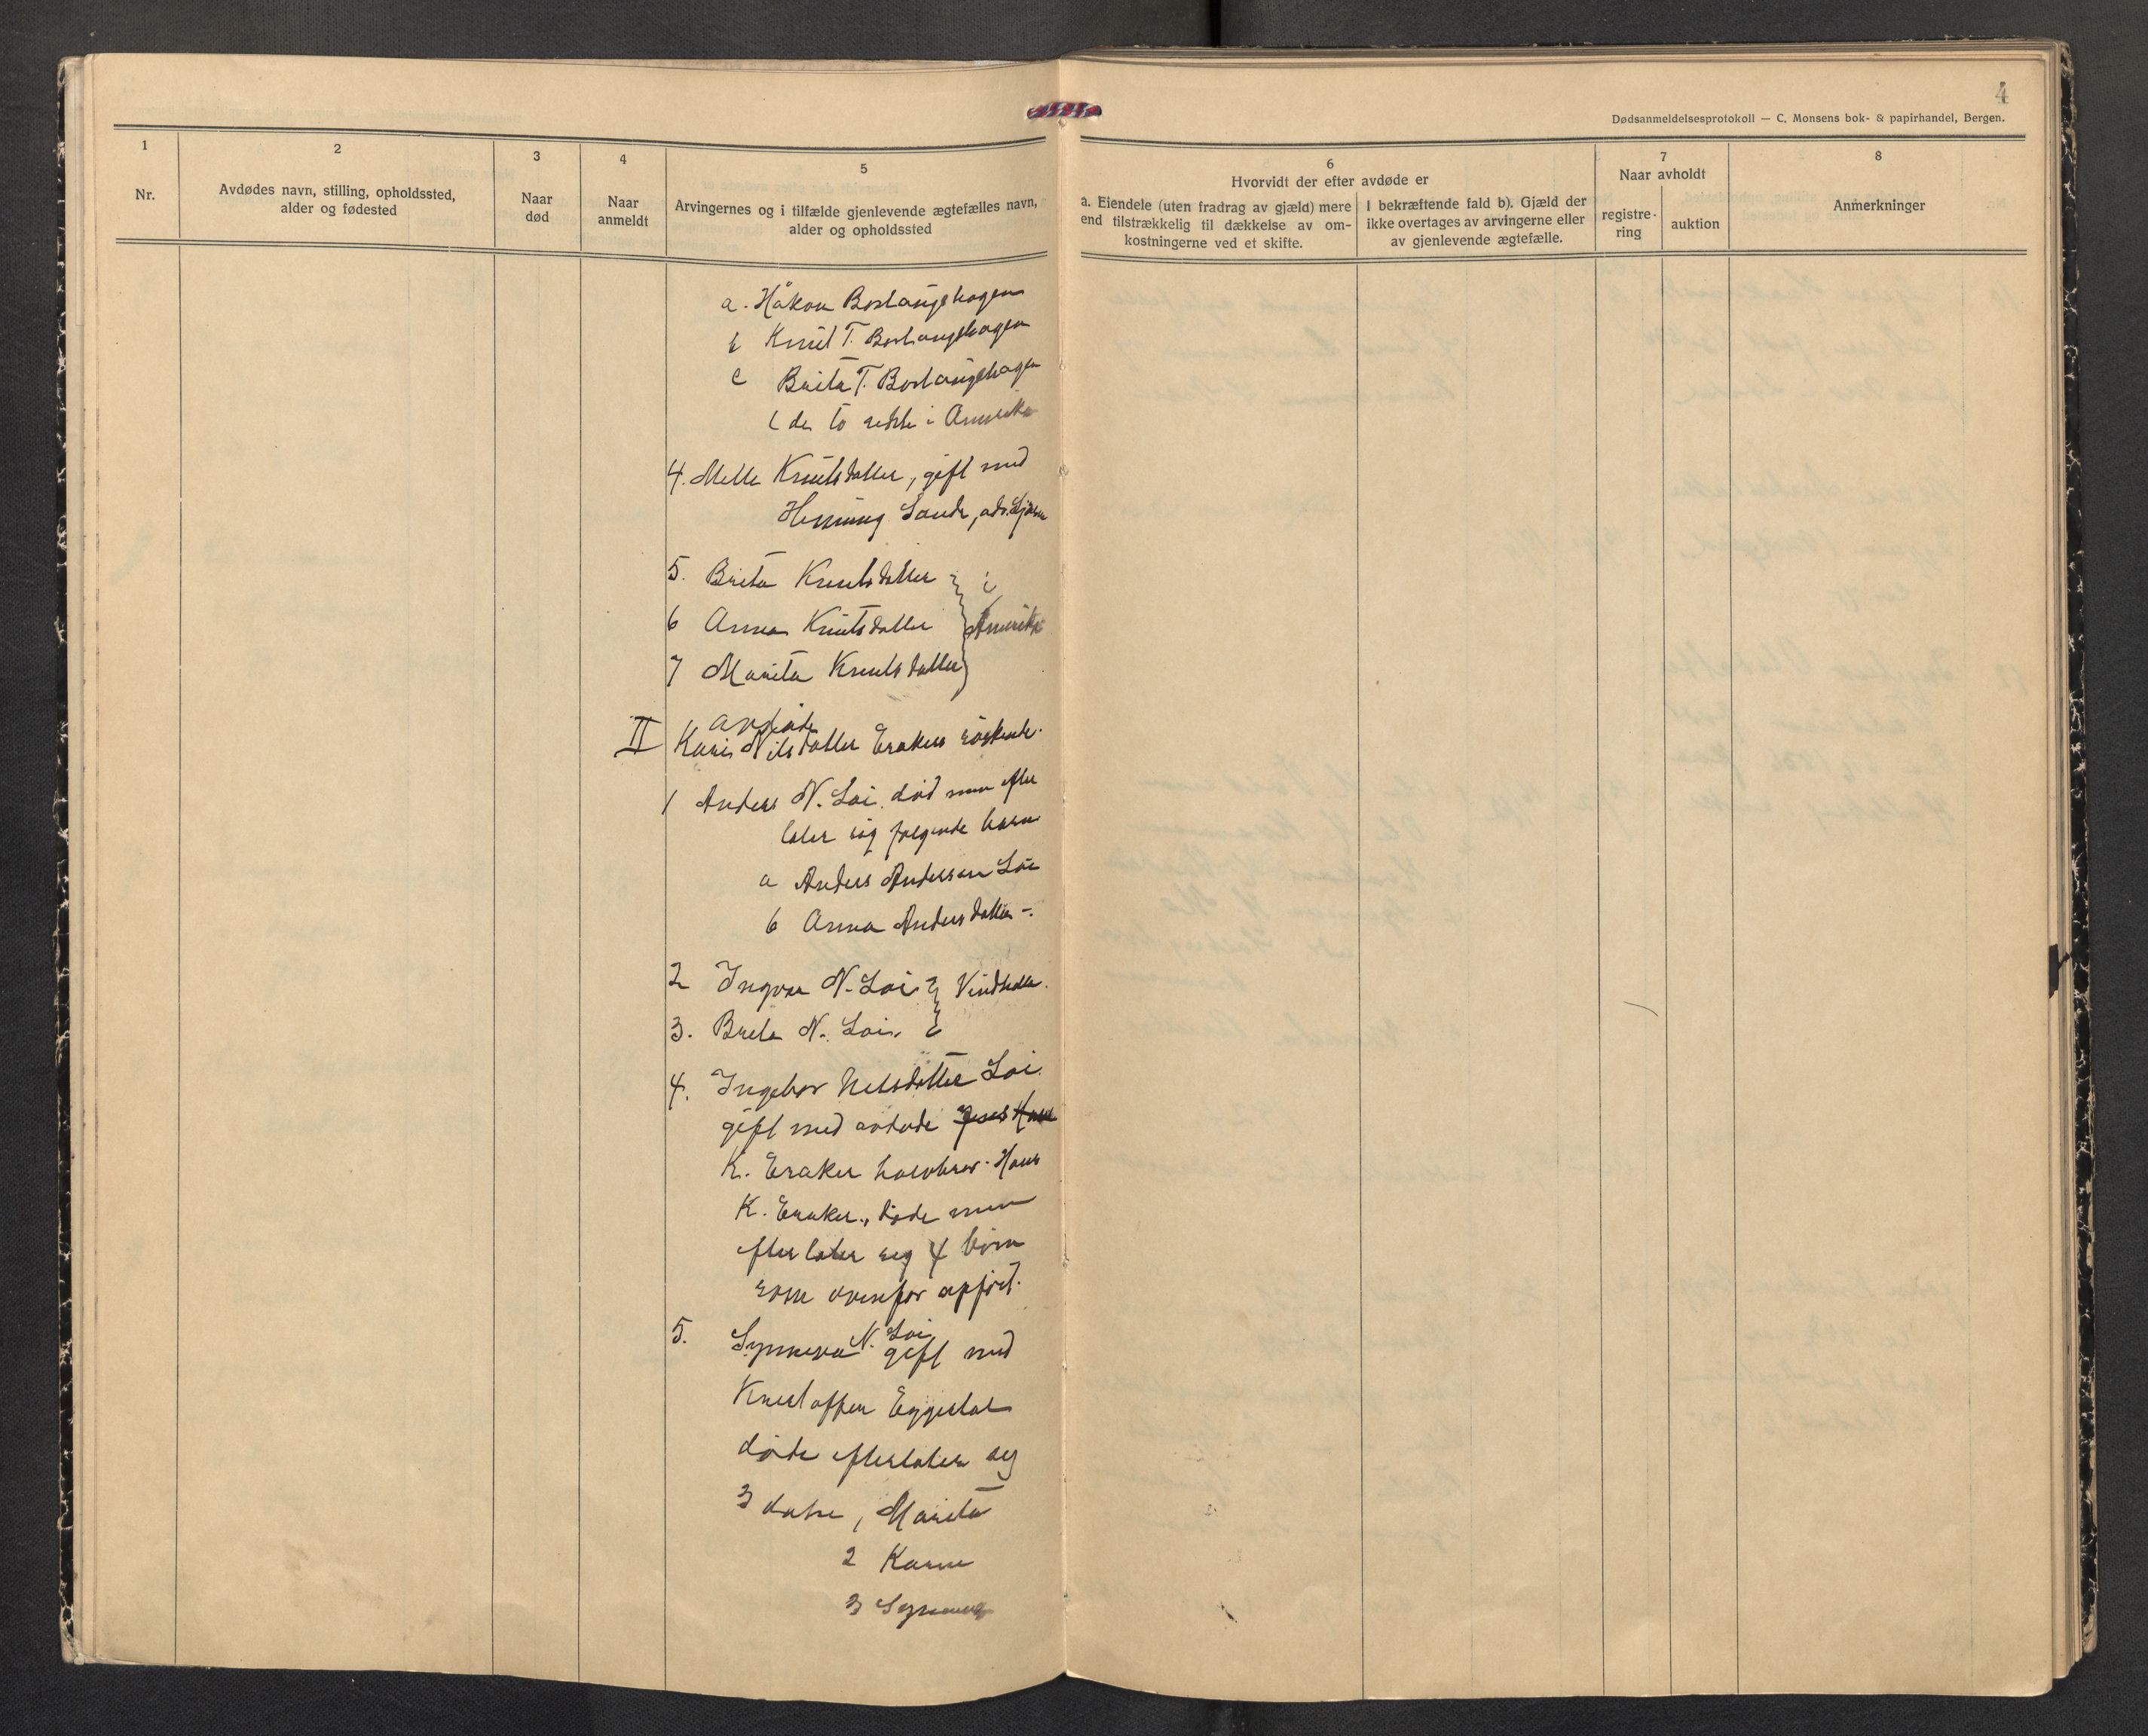 4
Dødsanmeldelsesprotokoll — C. Monsens bok- & papirhandel, Bergen.
1
2
3
4
5
6
7
8
Nr.
Avdødes navn, stilling, opholdssted,
alder og fødested
Naar
død
Naar
anmeldt
Arvingernes og i tilfælde gjenlevende ægtefælles navn,
alder og opholdssted
Hvorvidt der efter avdøde er
a. Eiendele (uten fradrag av gjæld) mere
end tilstrækkelig til dækkelse av om-
kostningerne ved et skifte.
I bekræftende fald b). Gjæld der
ikke overtages av arvingerne eller
av gjenlevende ægtefælle.
Naar avholdt
registre-
ring
auktion
Anmerkninger
a. Håkon
b Knut T.
c Brita T.
( de to sidste i Amerika
4. Knutsdatter, gift med
Henning
5. Brita Knutsdatter } i
6 Anna Knutsdatter } Amerika
7 Marita Knutsdatter }
avdøde
II Kari Nilsdatter Erakers søskende.
1 Anders N. Loi. død men efter
later sig følgende barn
a Anders Anderssen Loi
b Anna Andersdatter -.
2 Ingvar N. Loi }
3. Brita N. Loi. }
4. Ingebor Nelsdatter Loi.
gift med avdøde
K. Eraker halvbror. Hans
K. Eraker., døde men
efterlater seg 4 born
som ovenfor opført.
5. Synneva N. Loi gift med
Kristoffer
døde efterlater seg
3 døtre, Marita
2 Karen
3 Synneva